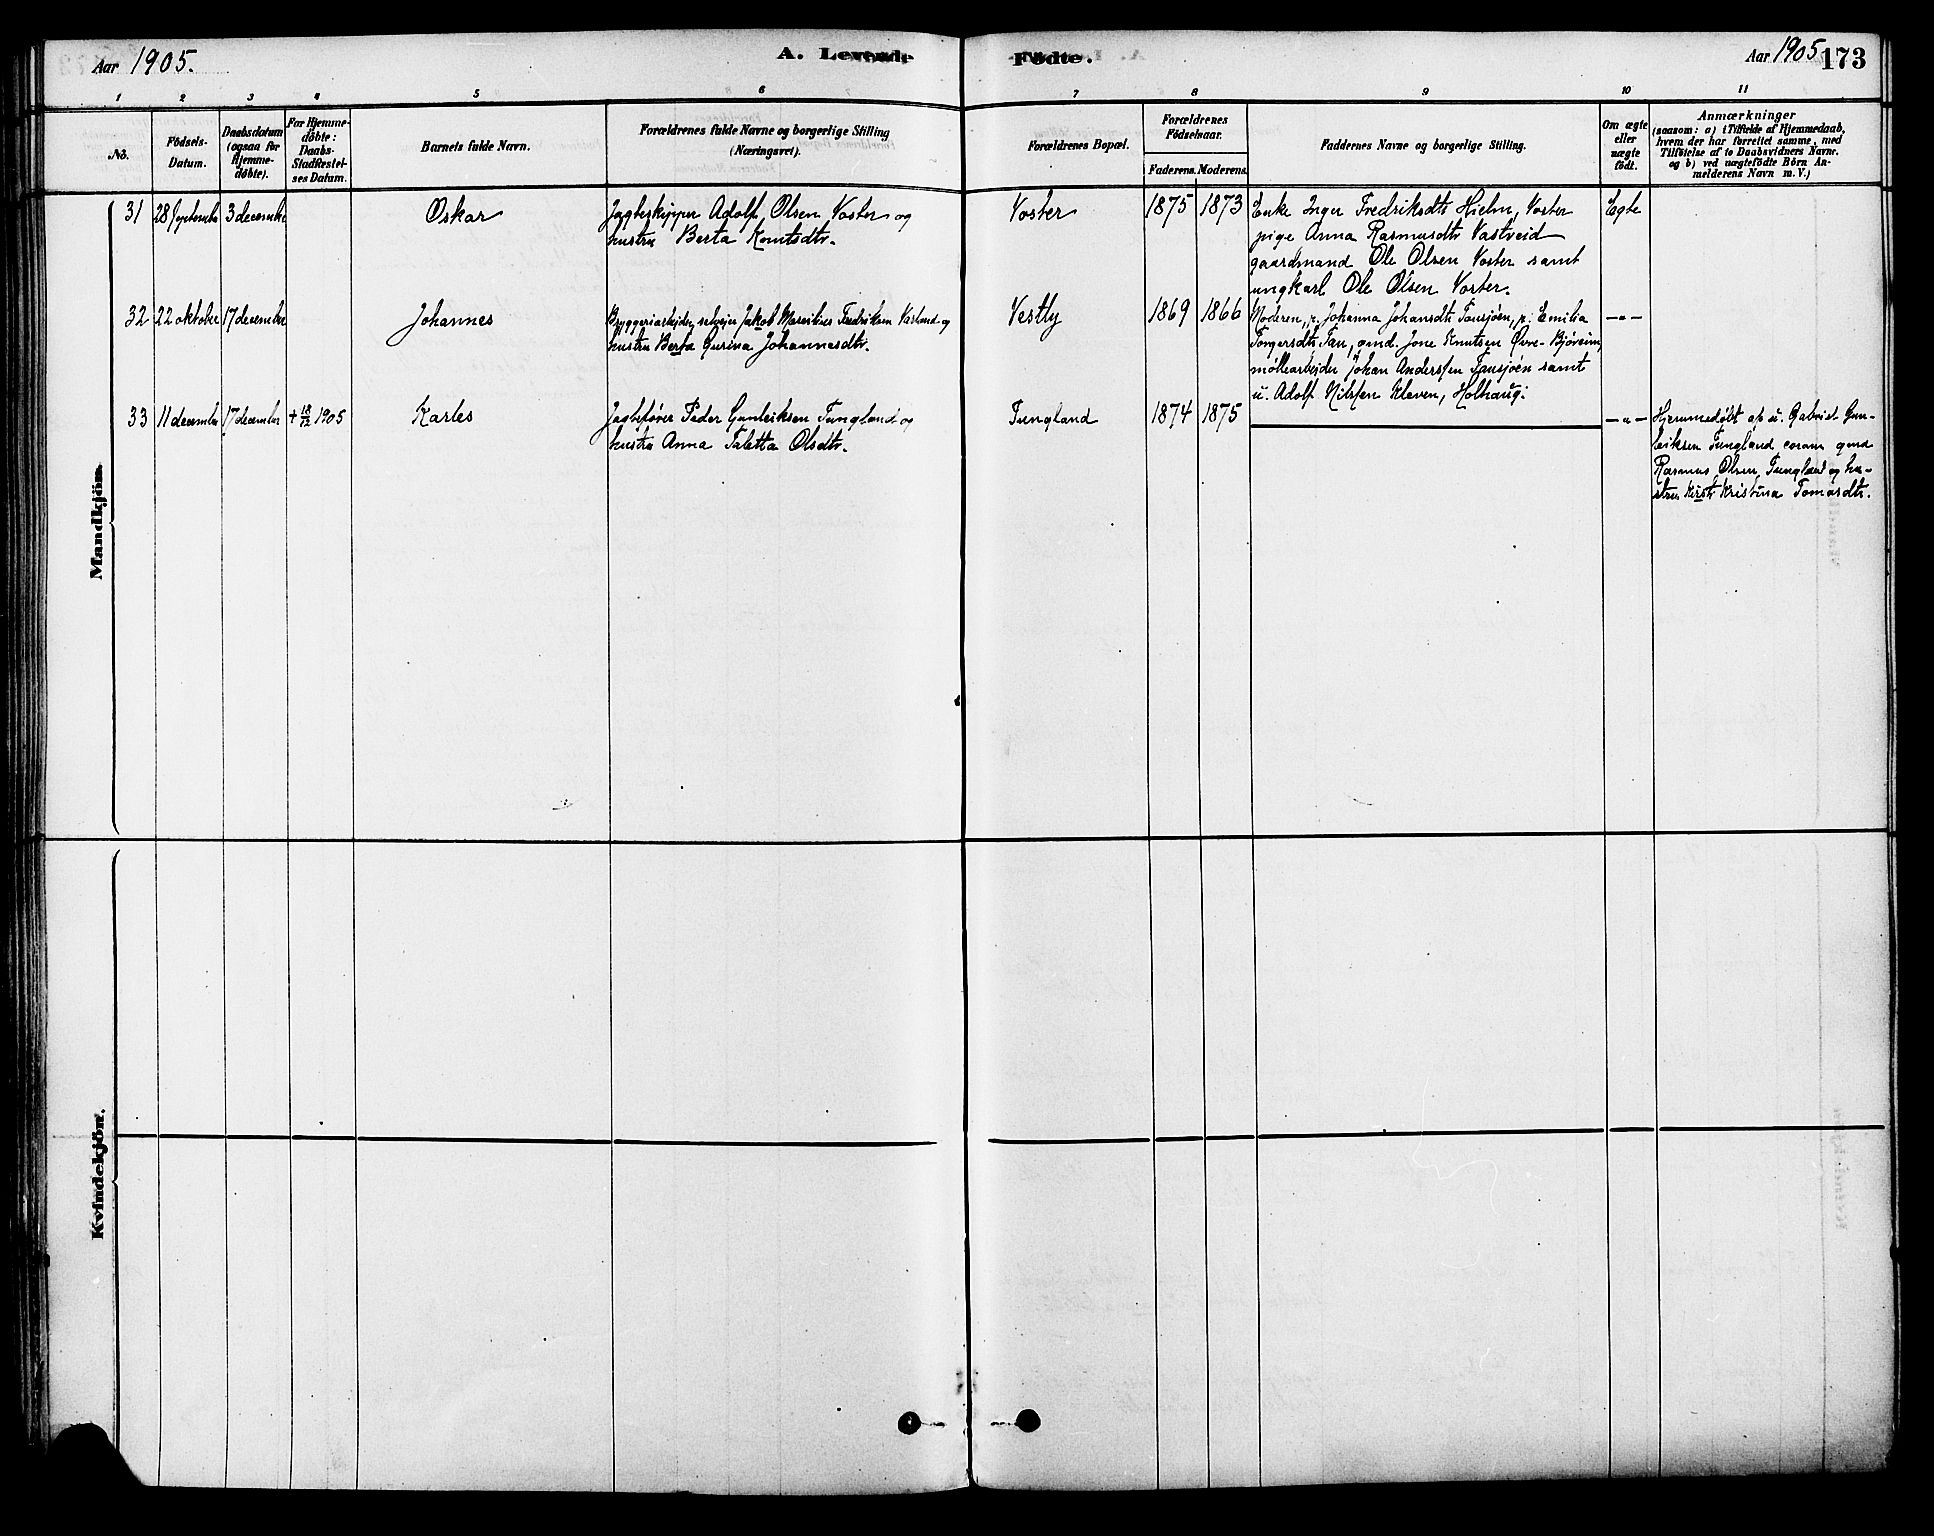 Aar 1905.
A. Levende Födte.
Aar 1905 173
1 2 3 4 5 6 7 8 9 10 11
No.
Födsels-
Datum.
Daabsdatum
(ogsaa for
Hjemme-
døbte).
For Hjemme-
døbte:
Daabs-
Stadfæstel-
ses Datum.
Barnets fulde Navn.
Forældrenes fulde Navne og borgerlige Stilling
(Næringsvei).
Forældrenes Bopæl.
Forældrenes
Fødselsaar.
Faderens. Moderens.
Faddernes Navne og borgerlige Stilling.
Om ægte
eller
uægte
født.
Anmærkninger
(saasom: a) i Tilfælde af Hjemmedaab,
hvem der har forrettet samme, med
Tilføielse af to Daabsvidners Navne.
og b) ved uægtefødte Börn An-
melderens Navn m. V.)
Mandkjön.
31 28 september 3 december Oskar
Jagteskipper Adolf Olsen Voster og
hustru Berta Knutsdtr.
Voster 1875 1873
Enke Inger Fredriksdtr Hielm, Voster
pige Anna Rasmusdtr Vastveid
gaardmand Ole Olsen Voster samt
ungkarl Ole Olsen Voster.
Egte
32 22 oktober 17 december Johannes
Byggeriarbejder, selvejer Jakob Fredriksen og
hustru Berta Gurina Johannesdtr.
Vestly 1869 1866
Moderen, p. Johanna Johansdtr Tausjøen, p. Emilia
Torgersdtr Tau, gmd. Jone Knutsen Øvre-Bjøreim,
møllearbejder Johan Anderssen Tausjøen samt
u. Adolf Nilssen Kleven, Holhaug.
—„—
33 11 december 17 december + 18/12 1905 Karles
Jagtefører Peder Gunleiksen Tungland og
hustru Anna Taletta Olsdtr.
Tungland 1874 1875
—„—
Hjemmedøbt af u. Gabriel Gun-
leiksen Tungland coram gmd
Rasmus Olsen Tungland og hu-
stru Kristina Tomasdtr.
Kvindekjön.